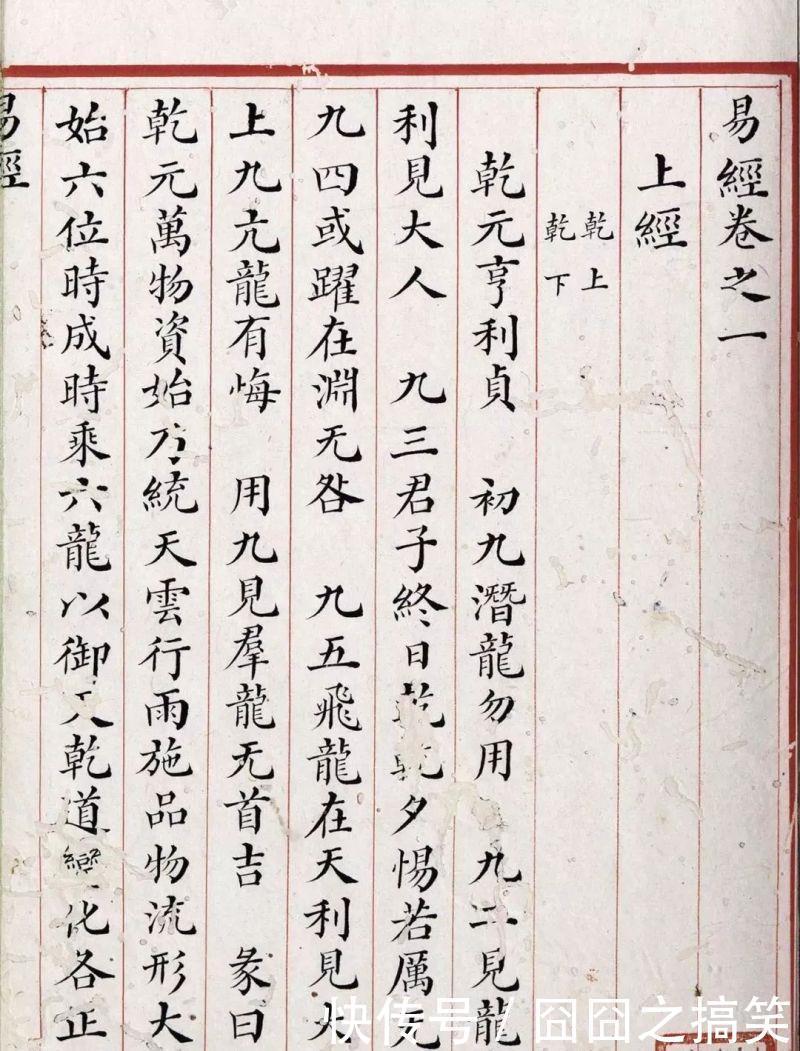 易經卷之一
上經
乾上
乾下
乾元亨利貞 初九潛龍勿用 九二見龍
利見大人 九三君子終日乾乾夕惕若厲无
九四或躍在淵无咎 九五飛龍在天利見大
上九亢龍有悔 用九見羣龍无首吉 彖曰
乾元萬物資始乃統天雲行雨施品物流形大
始六位時成時乘六龍以御天乾道變化各正
易經
快传号 / 囧囧之搞笑